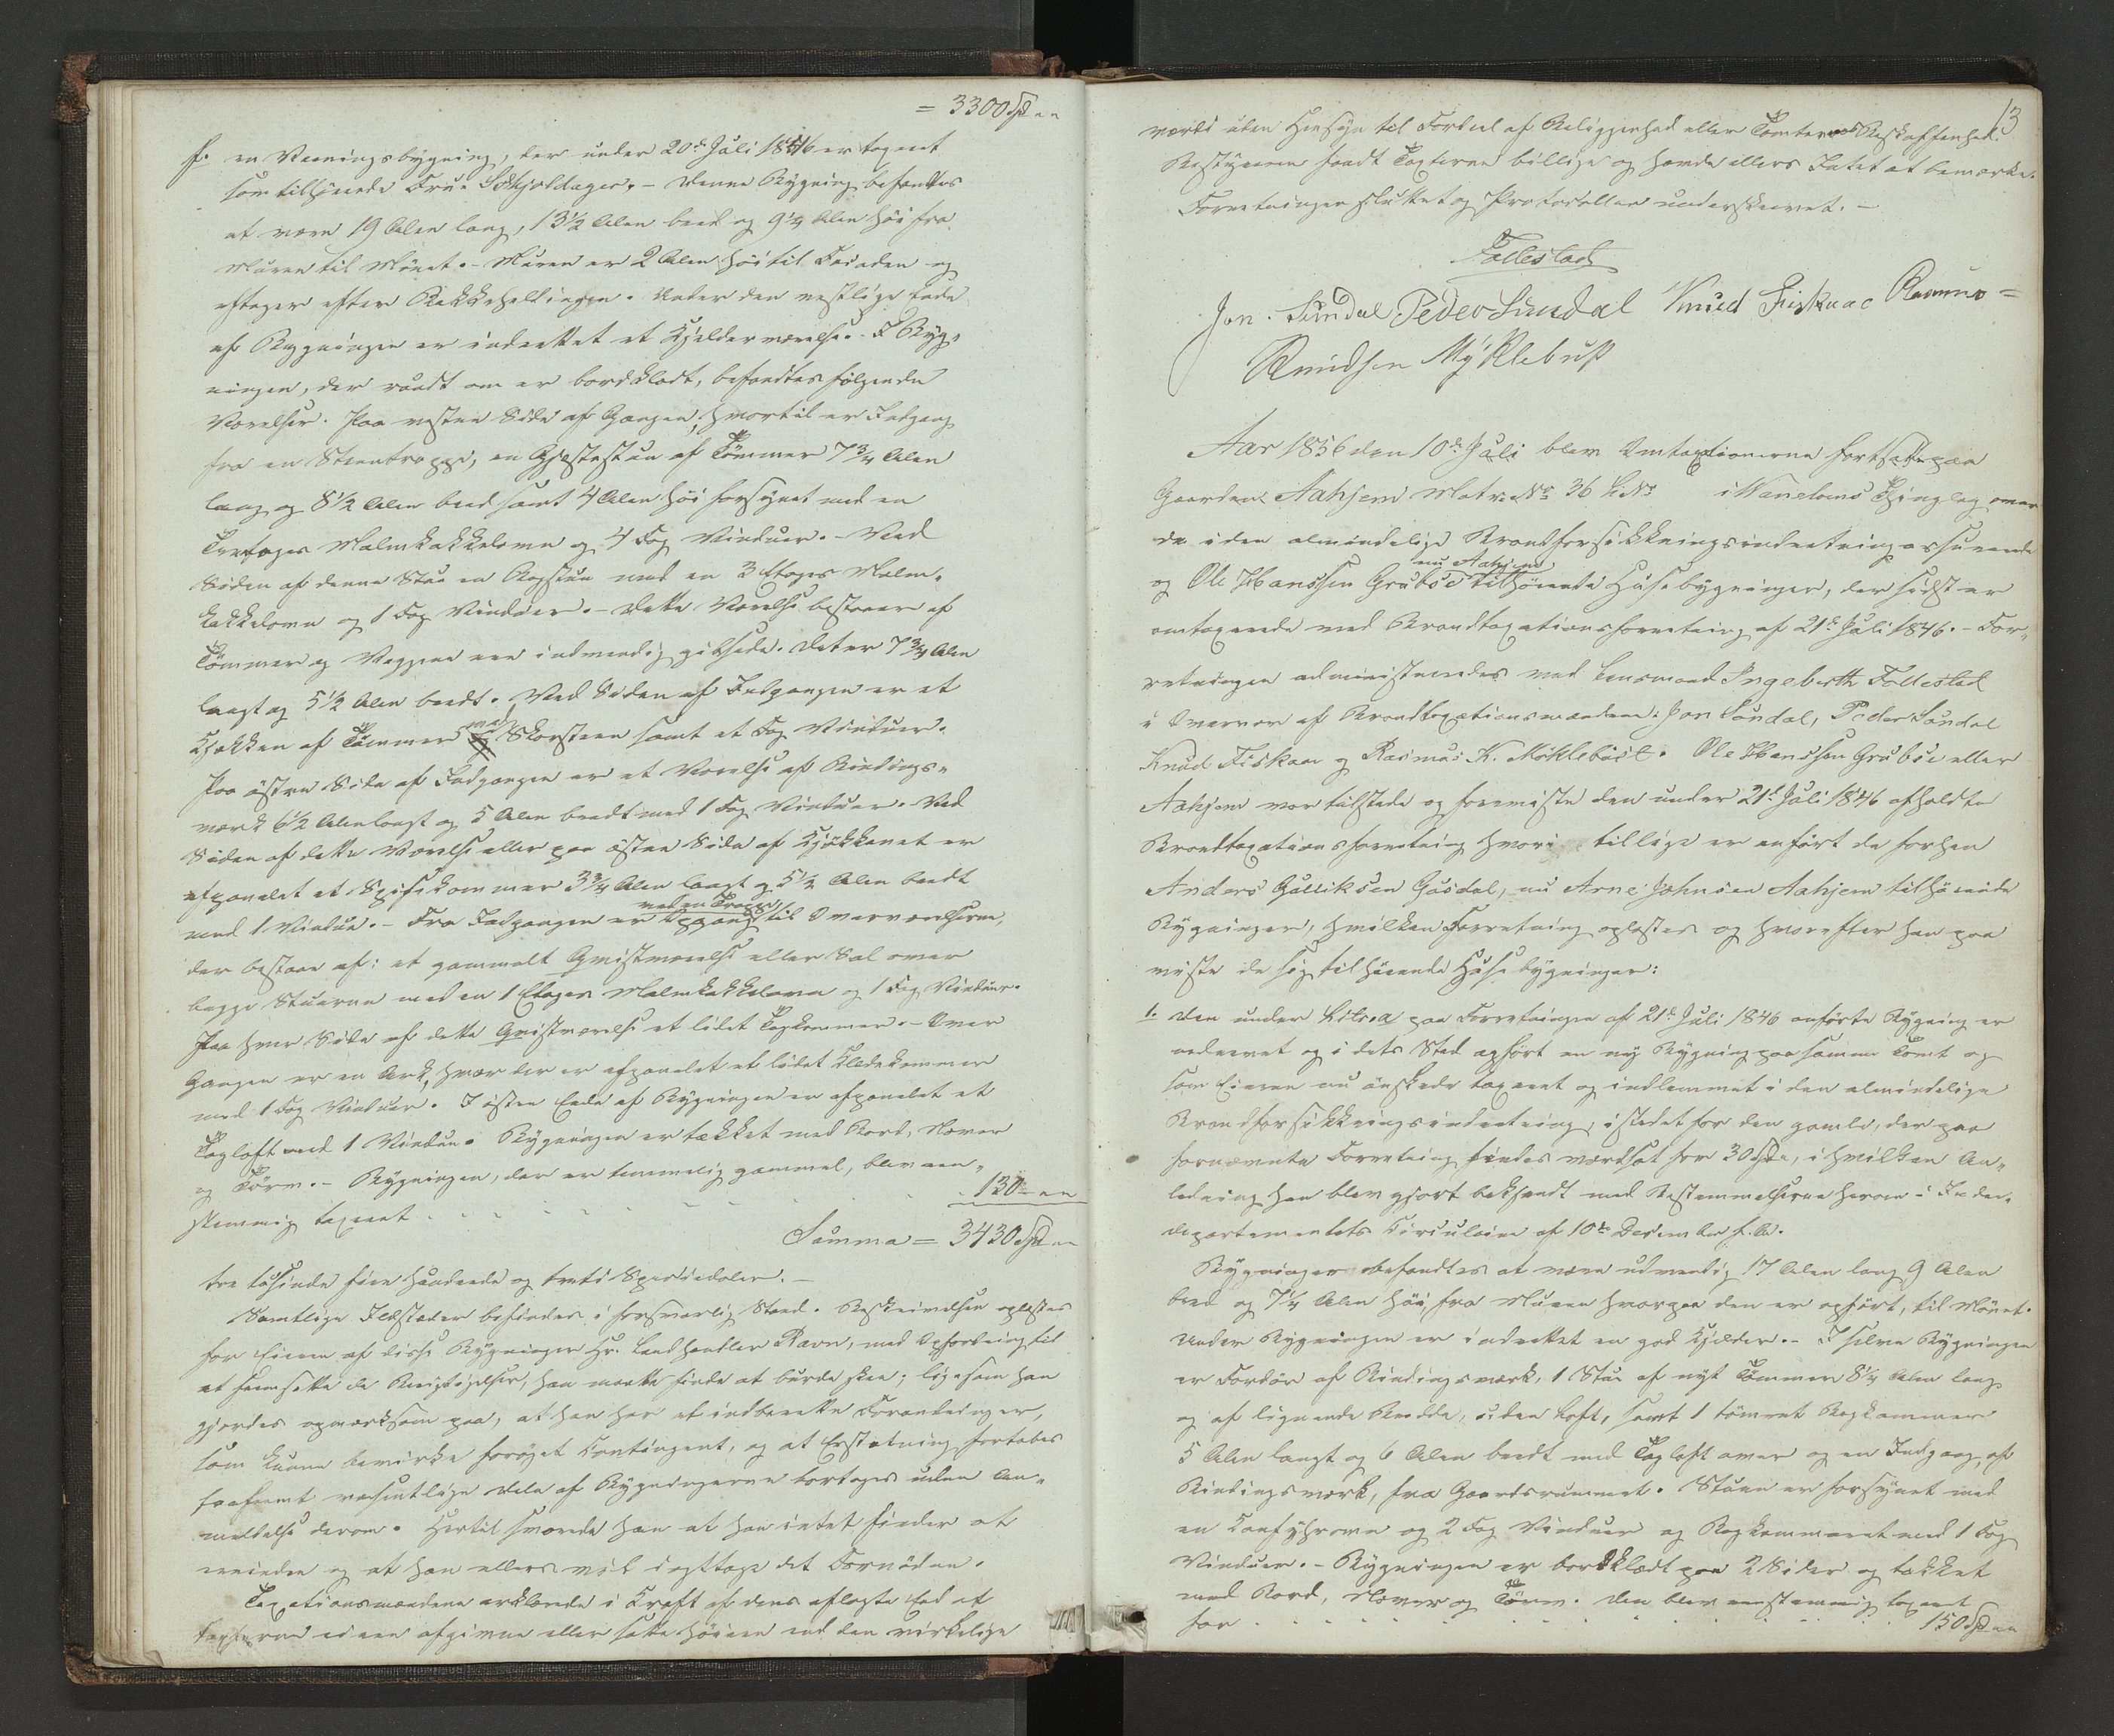 = 3300 Spd. "
f. en Vaaningsbygning, der under 20de Juli 1846 er taxeret
som tilhørende Frue Schjoldager. - Denne Bygning befandtes
at være 19 Alen lang, 13½ Alen bred og 9¼ Alen høi fra
Muren til Mønet. - Muren er 2 Alen høi til Facaden og
aftager efter Bakkehelding. Under den vestlige Ende
af Bygningen er indrettet et Kjelderværelse. - I Byg-
ningen, der rundt om er bordklædt, befandtes følgende
Værelser. Paa vestre Side af Gangen, hvortil er Indgang
fra en Steentrappe, en Gjæstestue af Tømmer 7¾ Alen
lang og 8½ Alen bred samt 4 Alen høi forsynet med en
Etages Malmkakkelovn og 4 Fag Vinduer. - Ved
Siden af denne Stue en Bagstue med en 3 Etages Malm-
kakkelovn og 1 Fag Vinduer. - Dette Værelse bestaaer af
Tømmer og Væggene ere indvendig gibsede. Det er 7¾ Alen
langt og 5½ Alen bredt. Ved Siden af Indgangen er et
Kjøkken af Tømmer med Skorsteen samt et Fag Vinduer.
Paa østre Side af Indgangen er et Værelse af Bindings-
værk 6½ Alen langt og 5 Alen bredt med 1 Fag Vinduer. Ved
Siden af dette Værelse eller paa østre Side af Kjøkkenet er
afpanelet et Spisekammer 3¾ Alen langt og 5½ Alen bredt
med 1 Vindue. - Fra Indgangen er ved en Trappe Opgang til Overværelserne,
der bestaae af: et gammelt Qvistværelse eller Sal over
begge Stuerne med en 1 Etages Malmkakkelovn og 1 Fag Vinduer.
Paa hver Side af dette Qvistværelse et lidet Tagkammer. - Over
Gangen er en Ark, hvor der er afpanelet et lidet Klædekammer
med 1 Fag Vinduer. I østre Ende af Bygningen er afpanelet et
Tagloft med 1 Vindue. Bygningen er tækket med Bord, Næver
og Tørv. - Bygningen, der er temmelig gammel, blev een-
stemmig taxeret . . . . . . 130 - "
Summa = 3430 Spd. "
tre tusinde fire hundrede og treti Speciedaler. -
Samtlige Ildsteder befindes i forsvarlig Stand. Beskrivelsen oplæstes
for Eieren af disse Bygninger Hr. Landhandler Ravn, med Opfordring til
at fremsætte de Berigtigelser, han maatte finde at burde skee; ligesom han
gjordes opmærksom paa, at han har at indberette Forandringer,
som kunne bevirke forøget Contingent, og at Erstatning fortabes
saafremt væsentlige Dele af Bygningerne borttages uden An-
meldelse derom. Hertil svarede han at han intet finder at
erindre og at han ellers vil iagttage det Fornødne.
Taxationsmændene erklærede i Kraft af deres aflagte Eed at
Taxterne ei ere afgivne eller satte høiere end den virkelige
13
værdi uden Hensyn til Fordeel af Beliggenhed eller Tomternes Beskaffenhed.
Bestyreren fandt Taxterne billige og havde ellers Intet at bemærke.
Forretningen sluttet og Protocollen underskrevet. -
Follestad
Jon. Sundal Peder Sundal Knud Fiskaae Rasmus =
Knudsen Myklebust
Aar 1856 den 10de Juli blev Omtaxationerne fortsatte paa
Gaarden Aahjem Matr. No 36 L. No i Vanelvens Thinglag over
de i den almindelige Brandforsikkringsindretning assurerede
og Ole Hanssen Grubse nu Aahjem tilhørende Huusebygninger, der sidst er
omtaxerede ved Brandtaxationsforretning af 21de Juli 1846. - For-
retningen administreredes ved Lensmand Ingebrth Follestad
i Overvær af Brandtaxationsmændene: Jon Sundal, Peder Sundal
Knud Fiskaae og Rasmus K. Møklebust. Ole Hanssen Grubse eller
Aahjem var tilstede og foreviste den under 21de Juli 1846 afholdte
Brandtaxationsforretning hvori tillige er anført de forhen
Anders Gulliksen Gusdal, nu Arne Johnsen Aahjem tilhørende
Bygninger, hvilken Forretning oplæstes og hvorefter han paa
viiste de sig tilhørende Huusebygninger:
1. Den under Litr. a paa Forretningen af 21de Juli 1846 anførte Bygning er
nedrevet og i dets Sted opført en ny Bygning paa samme Tomt og
som Eieren nu ønskede taxeret og indlemmet i den almindelige
Brandforsikkringsindretning, istedet for den gamle, der paa
fornævnte Forretning findes værdsat for 30 Spd., i hvilken An-
ledning han blev gjort bekjendt med Bestemmelserne herom i Inder-
departementets Circulaire af 10de December f. A.
Bygningen befandtes at være udvendig 17 Alen lang 9 Alen
bred og 7¼ Alen høi, fra Muren hvorpaa den er opført, til Mønet.
Under Bygningen er indrettet en god Kjelder. - I selve Bygningen
er Fordør af Bindingsværk, 1 Stue af nyt Tømmer 8¼ Alen lang
og af lignende Bredde, uden Loft, samt 1 tømret Bagkammer
5 Alen langt og 6 Alen bredt med Tagloft over og en Indgang, af
Bindingsværk, fra Gaardsrummet. Stuen er forsynet med
en Comfyhrovn og 2 Fag Vinduer og Bagkammeret med 1 Fag
Vinduer. - Bygningen er bordklædt paa 2 Sider og tækket
med Bord, Næver og Tørv. Den blev eenstemmig taxeret
for . . . . . . 150 Spd. "